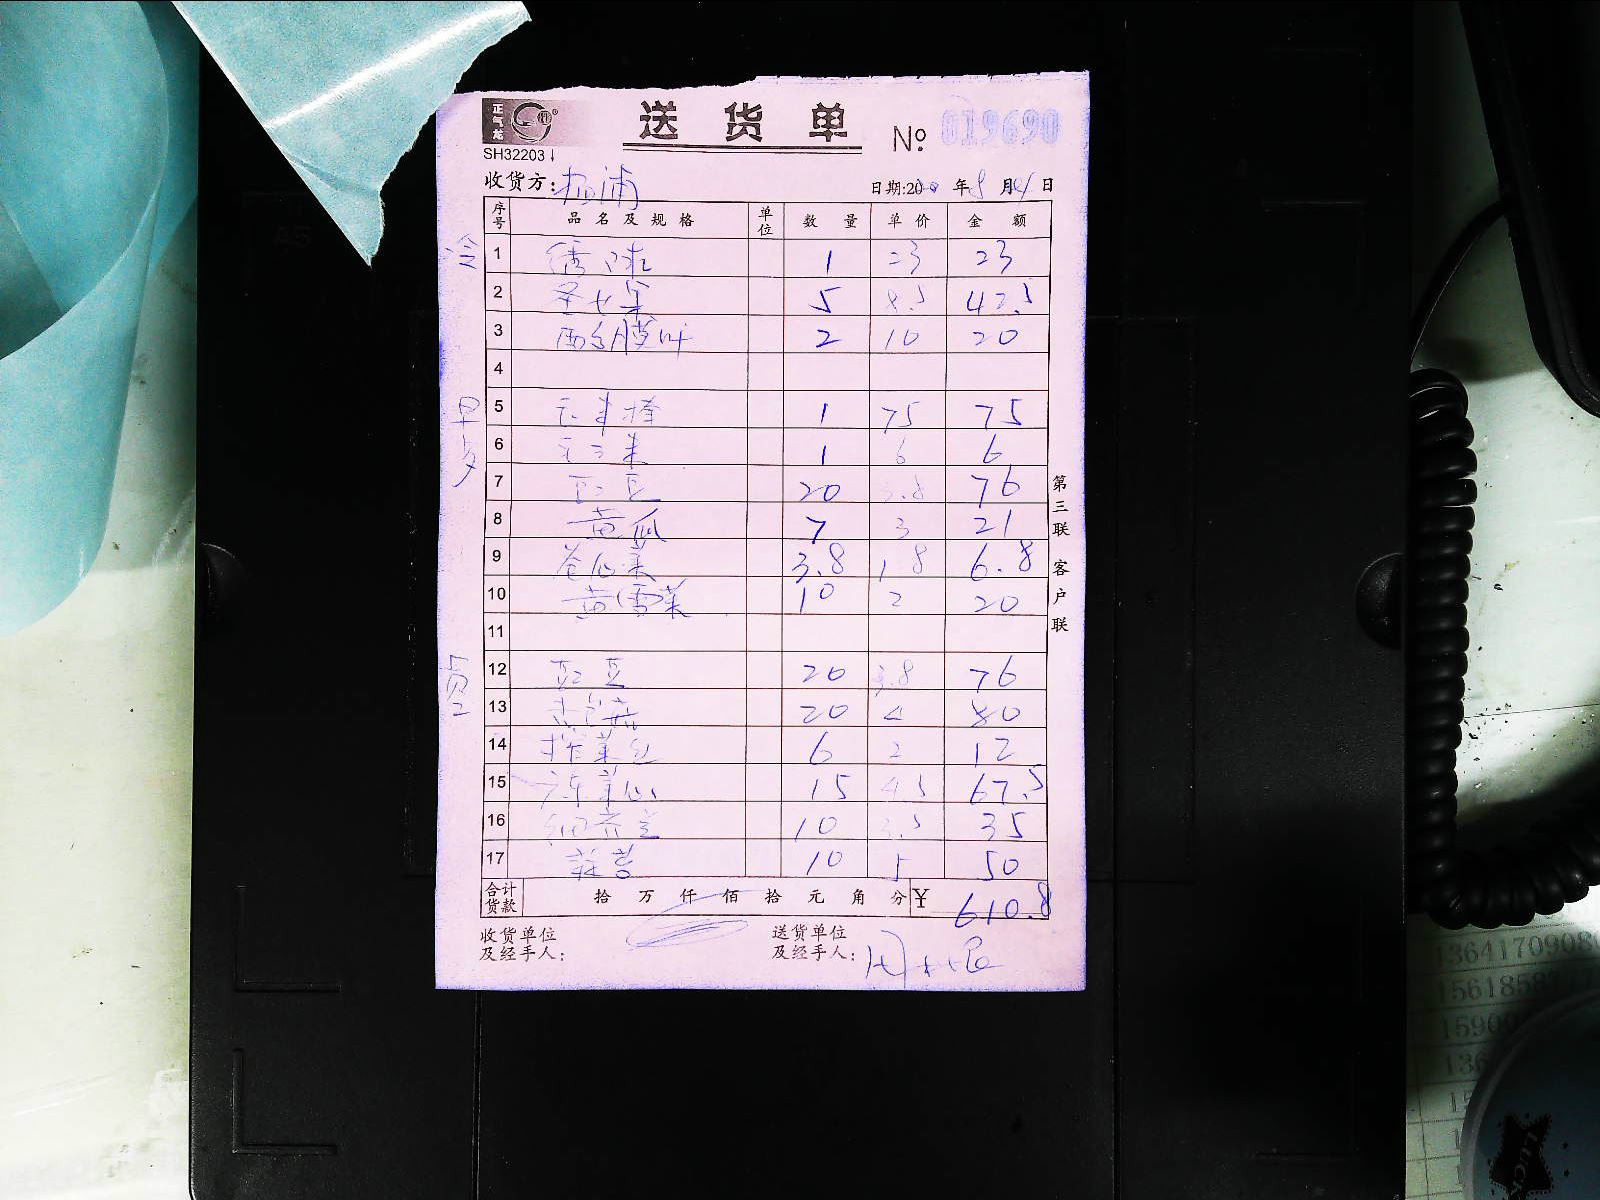 正气龙
送货单
№ 019690
SH32203
收货方: 杨浦
日期:20 年 8 月 4 日
序号 品名及规格 单位 数量 单价 金额
冷
1 绣球 1 23 23
2 圣女果 5 8.5 42.5
3 2 10 20
4
早夕
5 1 75 75
6 玉米 1 6 6
7 豇豆 20 3.8 76
8 黄瓜 7 3 21
9 卷心菜 3.8 1.8 6.8
10 菜 10 2 20
11
员工
12 豇豆 20 3.8 76
13 20 4 80
14 榨菜丝 6 2 12
15 广东菜心 15 4.5 67.5
16 10 3.5 35
17 10 5 50
合计货款 拾 万 仟 佰 拾 元 角 分 ¥ 610.8
收货单位及经手人:
送货单位及经手人: 周
第三联 客户联
1364170908
15618587
1590
136
15